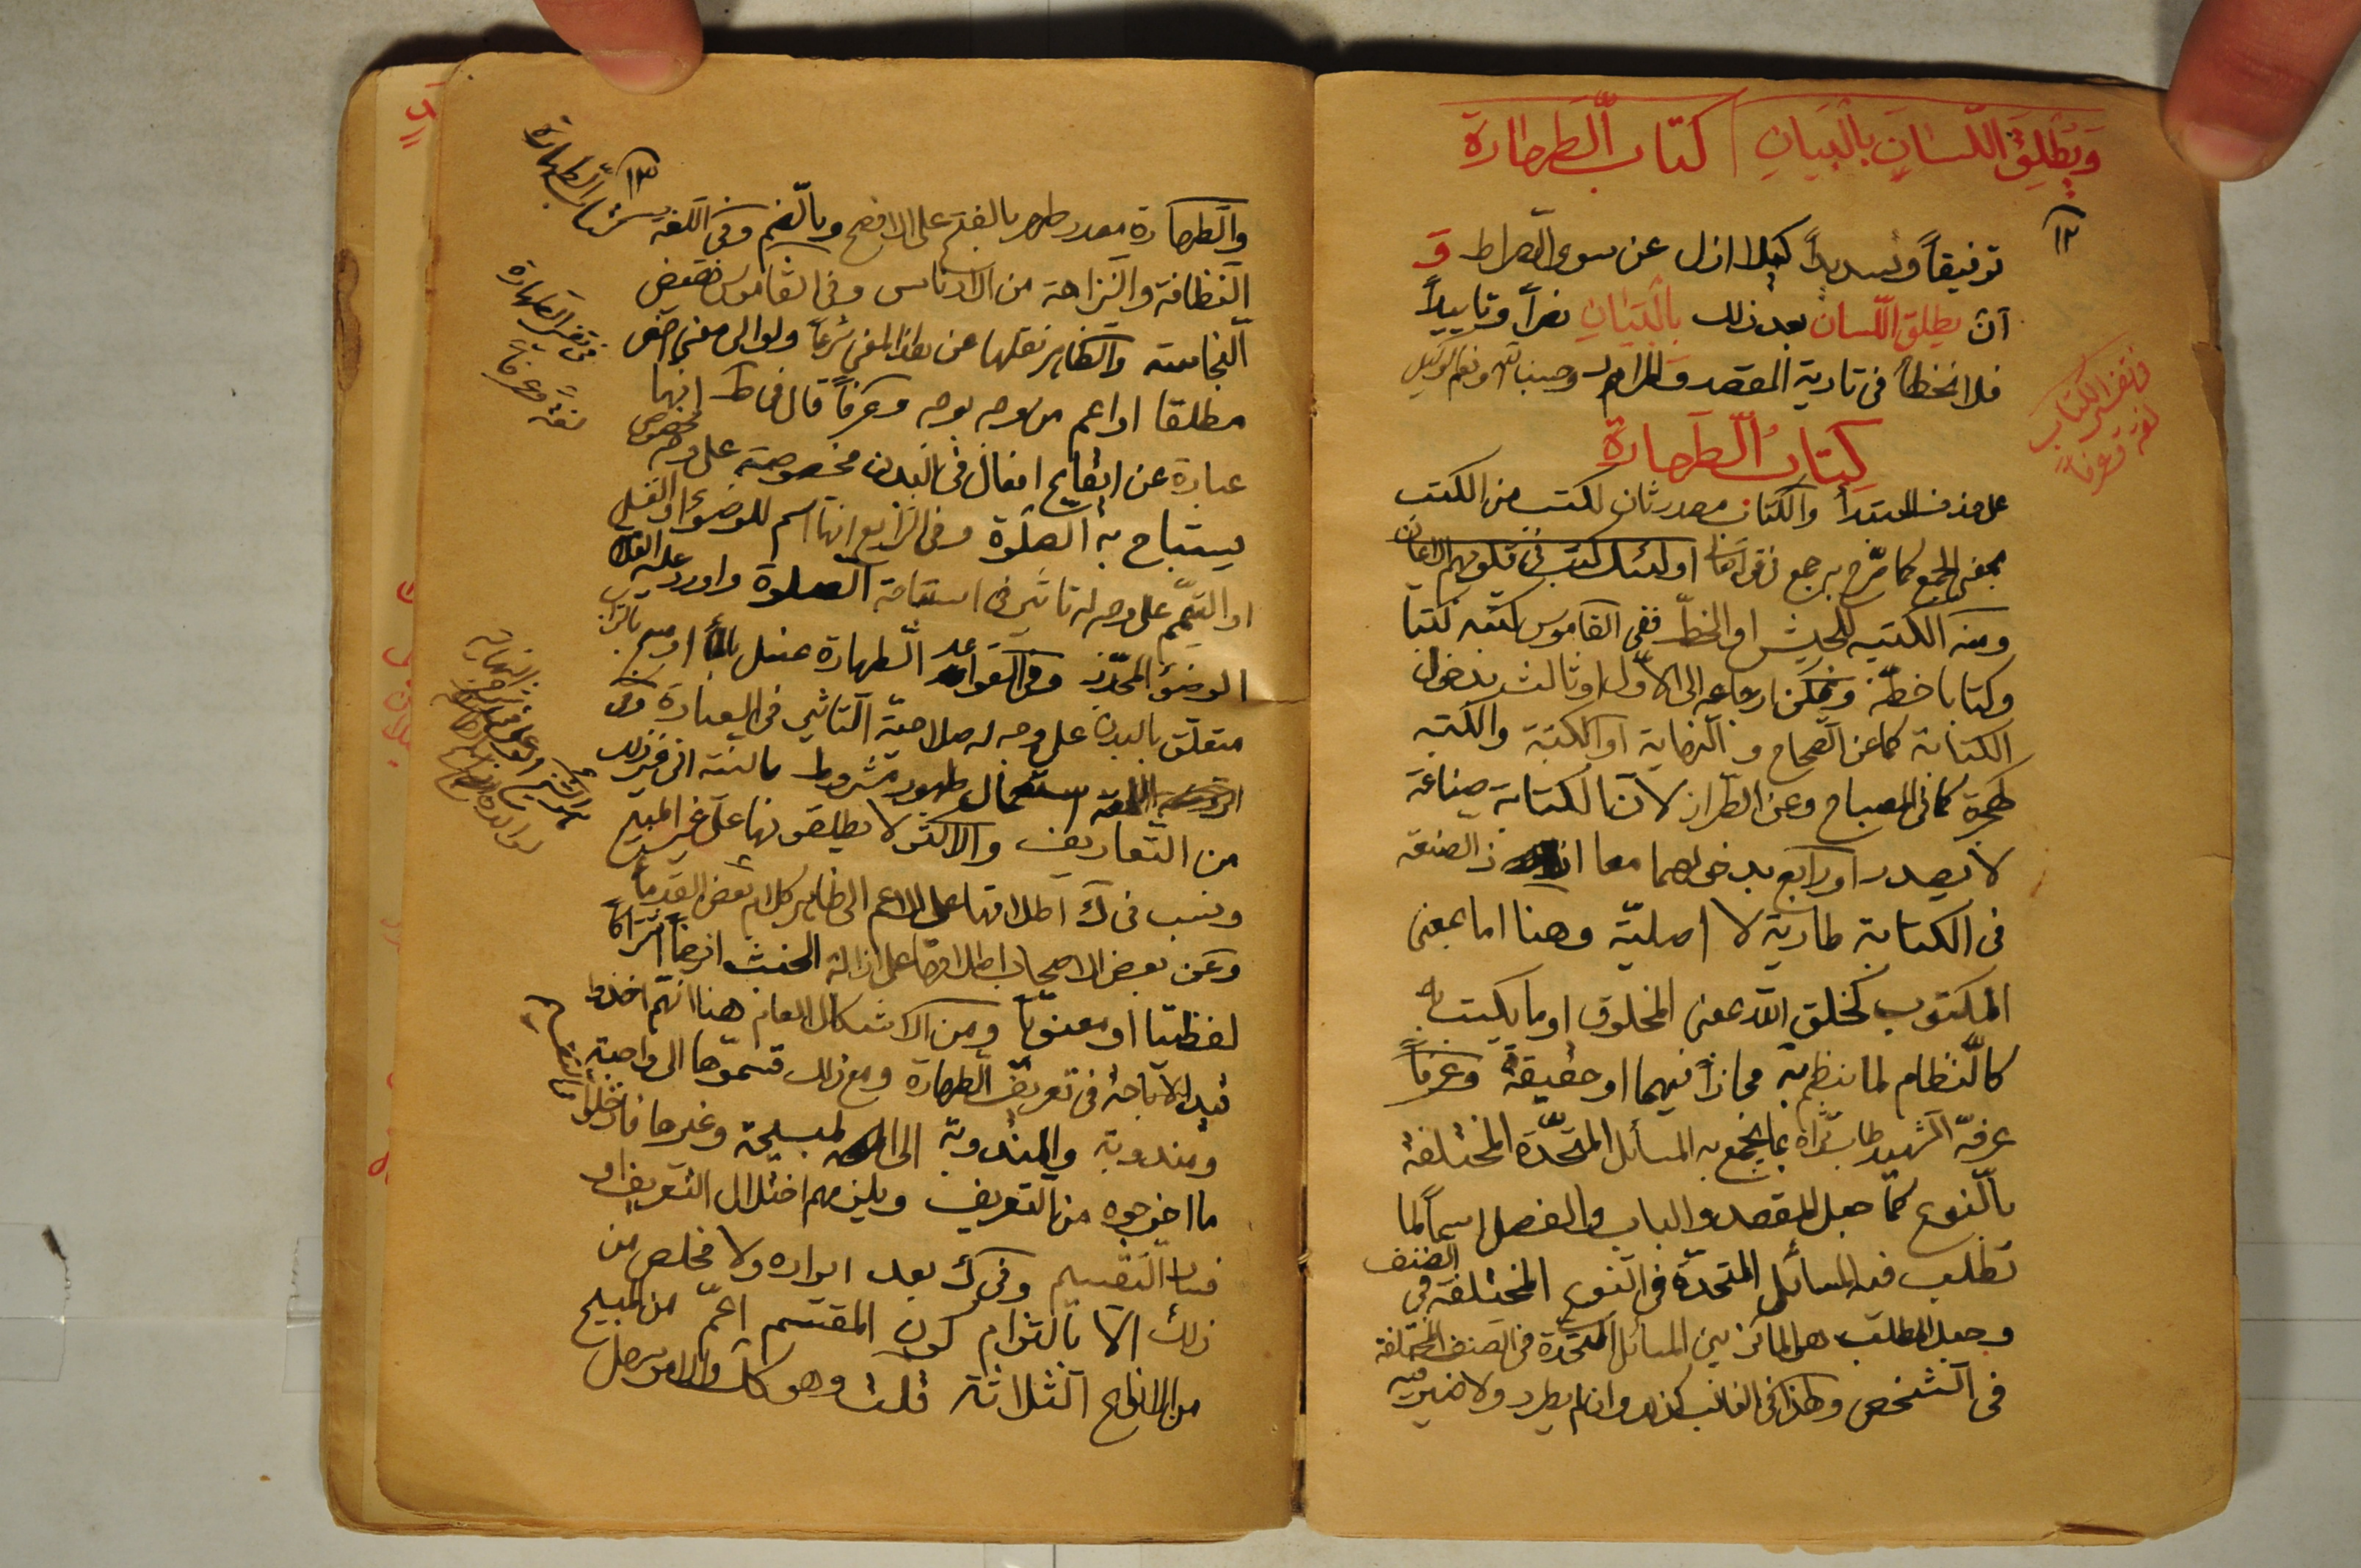 وَيُطْلِقَ اللّسانَ بالبَيانِ كتاب الطّهارة
١٢
توفيقاً وتسديداً كيلا ازل عن سوى الصراط وَ
آنْ يطلق اللّسان بعد ذلك بالبَيَانِ نصراً وتاييداً
فلا نخطأ فى تادية المقصد والمرام وحسبنا الله ونعم الوكيل
فى تفسير الكتاب
لغة وعرفاً
كِتابُ الطَّهارةِ
على حذف المبتدأ والكتاب مصدر ثان لكتب من الكتب
بمعنى الجمع كما صرّح به جمع اولئك كتب فى قلوبهم الايمان
ومنه الكتيبه للجيش او الخطّ ففى القاموس كتبه كتبا
وكتابا خطّه ويمكن ارجاعه الى الاوّل او ثالث بدخول
الكتابة كما عن الصحاح و النهاية او الكتبة والكتبه
كهجرة كما فى المصباح وعن الطراز لا تا الكتابة صناعة
لا يصدر او رابع بدخولهما معا اذ الصنعة
فى الكتابة طارية لا اصليّة وهنا اما بمعنى
المكتوب كخلق الله بمعنى المخلوق او ما يكتب به
كالنّظام لما ينظم به مجازاً فيهما او حقيقةً وعرفاً
عرفّه الشهيد طاب ثراه بما يجمع به المسائل المتّحدة المختلفة
بالنّوع كما جعل المقصد والباب والفصل اسماً لما
تطلب فيه المسائل المتحدة فى النوع المختلفة فى الصنف
وجعل المطلب هو المائز بين المسائل المتّحدة فى الصنف المختلفة
فى الشخص وهذا فى الغالب كذلك وان لم يطرد ولا ضير فيه
١٣
كتاب الطهارة
والطهارة مصدر طهر بالفتح على الافصح وبالضّم وفى اللّغة
النظافة والنزاهة من الادناس وفى القاموس نقيض
النجاسة والظاهر نقلها عن هذا المعنى شرعاً ولو الى معنى اخص
مطلقا او اعم من وجه بوجه وعرفاً قال فى ط انها
عبارة عن ايقاع افعال فى البدن مخصوصة على وجه مخصوص
يستباح به الصلوة وفى الشرايع انها اسم للوضوء او الغسل
او التيمّم على وجه له تاثير فى استباحة الصلوة واورد عليه
الوضوء المجدّد وفى القواعد الطهارة غسل بالماء او مسح بالتراب
متعلق بالبدن على وجه له صلاحيّة التاثير فى العبادة وفى
استعمال طهور مشروط بالنية الى غير ذلك
من التعاريف والاكثر لا يطلقونها على غير المبيح
ونسب فى ك اطلاقها على الاعم الى ظاهر كلام بعض القدماء
وعن بعض الاصحاب اطلاقها على ازالة الخبث ايضاً اشتراكاً
لفظيّا او معنويّاً ومن الاشكال العام هنا انهم اخذوا
قيد الاباحة فى تعريف الطهارة ومع ذلك قسموها الى واجبة
ومندوبة والمندوبة الى المبيحة وغيرها فادخلوا
ما اخرجوه من التعريف ويلزمهم اختلال التعريف او
فساد التقسيم وفى ك بعد ايراده ولا مخلص من
ذلك الا بالتزام كون المقسم اعمّ من المبيح
من الانواع الثلاثة قلت وهو كك والامر سهل
فى تفسير الطهارة
لغة وعرفاً